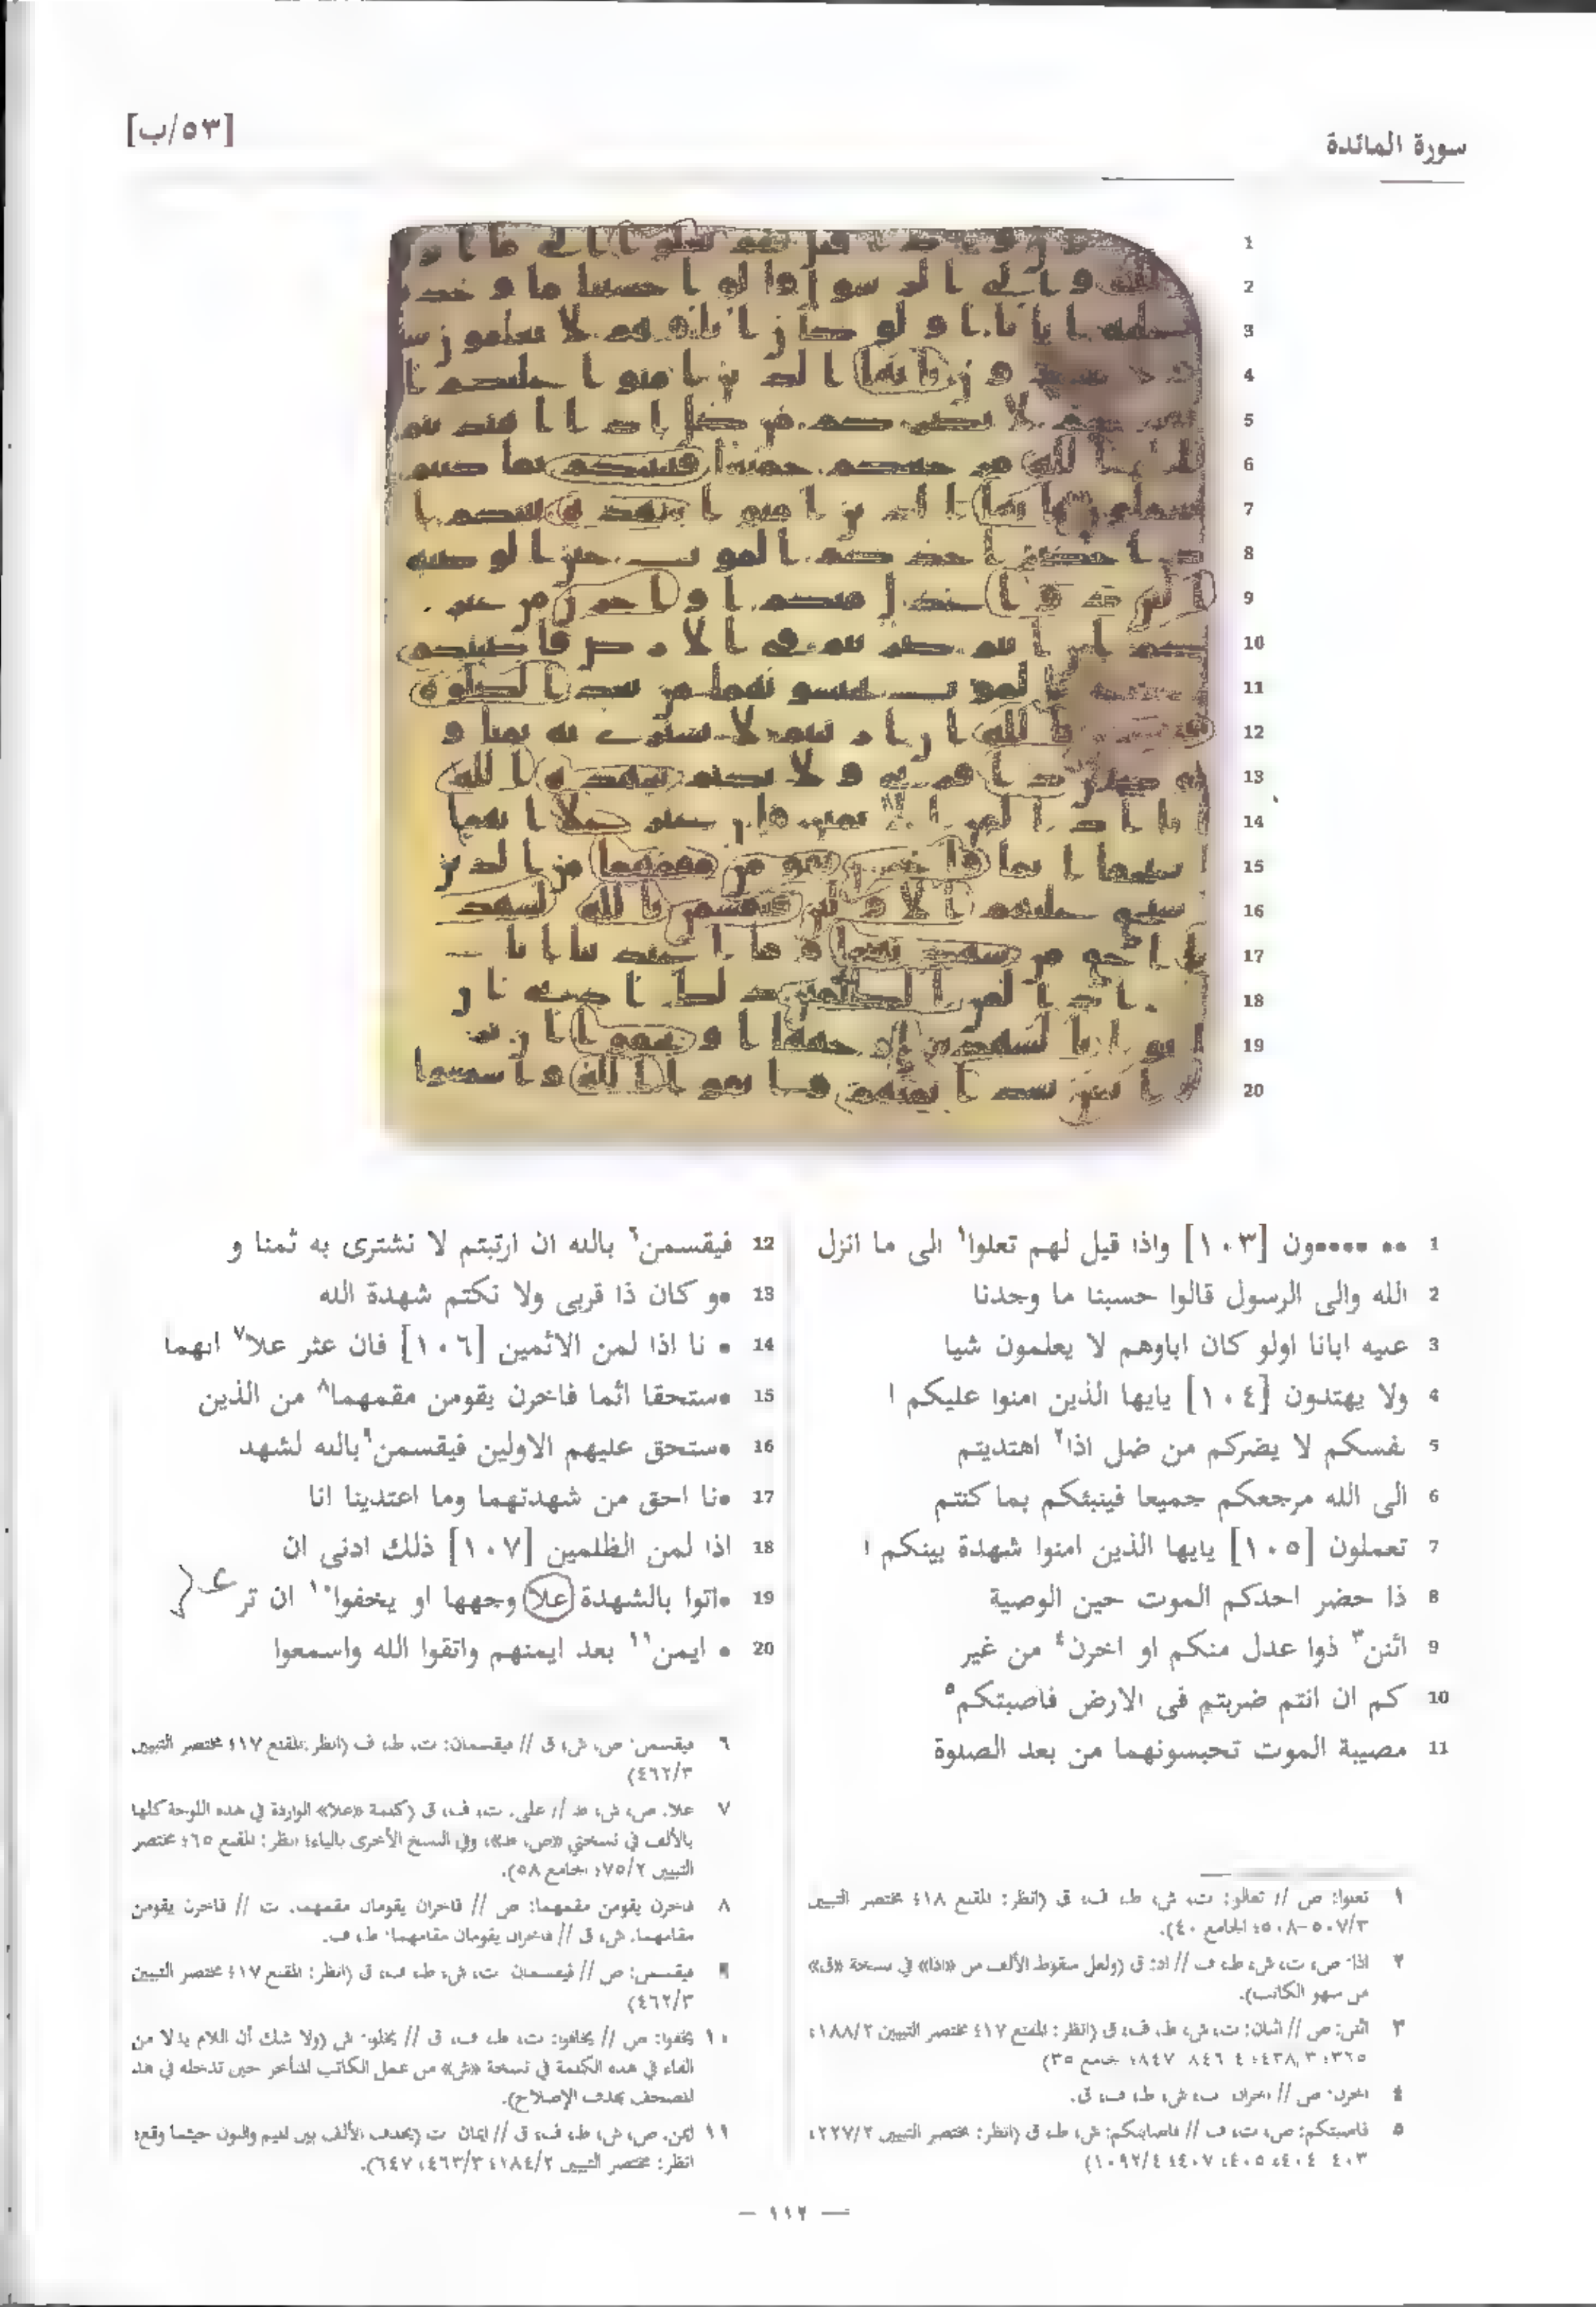 سورة المائدة
[٥٣/ب]
1 •• •••••ون [١٠٣] واذا قيل لهم تعلوا١ الى ما انزل
2 الله والى الرسول قالوا حسبنا ما وجدنا
3 عليه ابانا اولو كان اباوهم لا يعلمون شيا
4 ولا يهتدون [١٠٤] يايها الذين امنوا عليكم ا
5 نفسكم لا يضركم من ضل اذا٢ اهتديتم
6 الى الله مرجعكم جميعا فينبئكم بما كنتم
7 تعملون [١٠٥] يايها الذين امنوا شهدة بينكم ا
8 ذا حضر احدكم الموت حين الوصية
9 اثنن٣ ذوا عدل منكم او اخرن٤ من غير
10 كم ان انتم ضربتم فى الارض فاصبتكم٥
11 مصيبة الموت تحبسونهما من بعد الصلوة
12 فيقسمن٦ بالله ان ارتبتم لا نشترى به ثمنا و
13 •و كان ذا قربى ولا نكتم شهدة الله
14 • نا اذا لمن الاثمين [١٠٦] فان عثر علا٧ انهما
15 •ستحقا اثما فاخرن يقومن مقمهما٨ من الذين
16 •ستحق عليهم الاولين فيقسمن٩ بالله لشهد
17 •نا احق من شهدتهما وما اعتدينا انا
18 اذا لمن الظلمين [١٠٧] ذلك ادنى ان
19 •اتوا بالشهدة علا وجهها او يخفوا١٠ ان تر
20 • ايمن١١ بعد ايمنهم واتقوا الله واسمعوا
١ تعلوا: ص // تعالو: ت، ش، ط، ف، ق (انظر: المقنع ١٨؛ مختصر التبيين
٣/٥٠٧-٥٠٨؛ الجامع ٤٠).
٢ اذا: ص، ت، ش، ط، ف // اذ: ق (ولعل سقوط الألف من «اذا» في نسخة «ق»
من سهو الكاتب).
٣ اثنن: ص // اثنان: ت، ش، ط، ف، ق (انظر: المقنع ١٧؛ مختصر التبيين ١٨٨/٢؛
٤ اخرن: ص // اخران: ت، ش، ط، ف، ق.
٥ فاصبتكم: ص، ت، ف // فاصابتكم: ش، ط، ق (انظر: مختصر التبيين ٢٢٧/٢؛
٤٠٣، ٤٠٤، ٤٠٥، ٤٠٧؛ ١٠٩٢/٤)
٦ فيقسمن: ص، ش، ق // فيقسمان: ت، ط، ف (انظر: المقنع ١٧؛ مختصر التبيين
٤٦٢/٣)
٧ علا: ص، ش، ط // على: ت، ف، ق (كلمة «علا» الواردة في هذه اللوحة كلها
بالألف في نسختي «ص، ط»، وفي النسخ الأخرى بالياء؛ انظر: المقنع ٦٥؛ مختصر
التبيين ٧٥/٢؛ الجامع ٥٨).
٨ فاخرن يقومن مقمهما: ص // فاخران يقومان مقمهما: ت // فاخرن يقومن
مقامهما: ش، ق // فاخران يقومان مقامهما: ط، ف.
٩ فيقسمن: ص // فيقسمان: ت، ش، ط، ف، ق (انظر: المقنع ١٧؛ مختصر التبيين
٤٦٢/٣)
١٠ يخفوا: ص // يخافوا: ت، ط، ف، ق // يخلو: ش (ولا شك أن اللام بدلا من
الفاء في هذه الكلمة في نسخة «ش» من عمل الكاتب المتأخر حين تدخله في هذ
المصحف بهدف الإصلاح).
١١ ايمن: ص، ش، ط، ف، ق // ايمان: ت (بحذف الألف بين الميم والنون حيثما وقع؛
انظر: مختصر التبيين ١٨٤/٢؛ ٤٦٣/٣؛ ٦٤٧).
— ١١٢ —